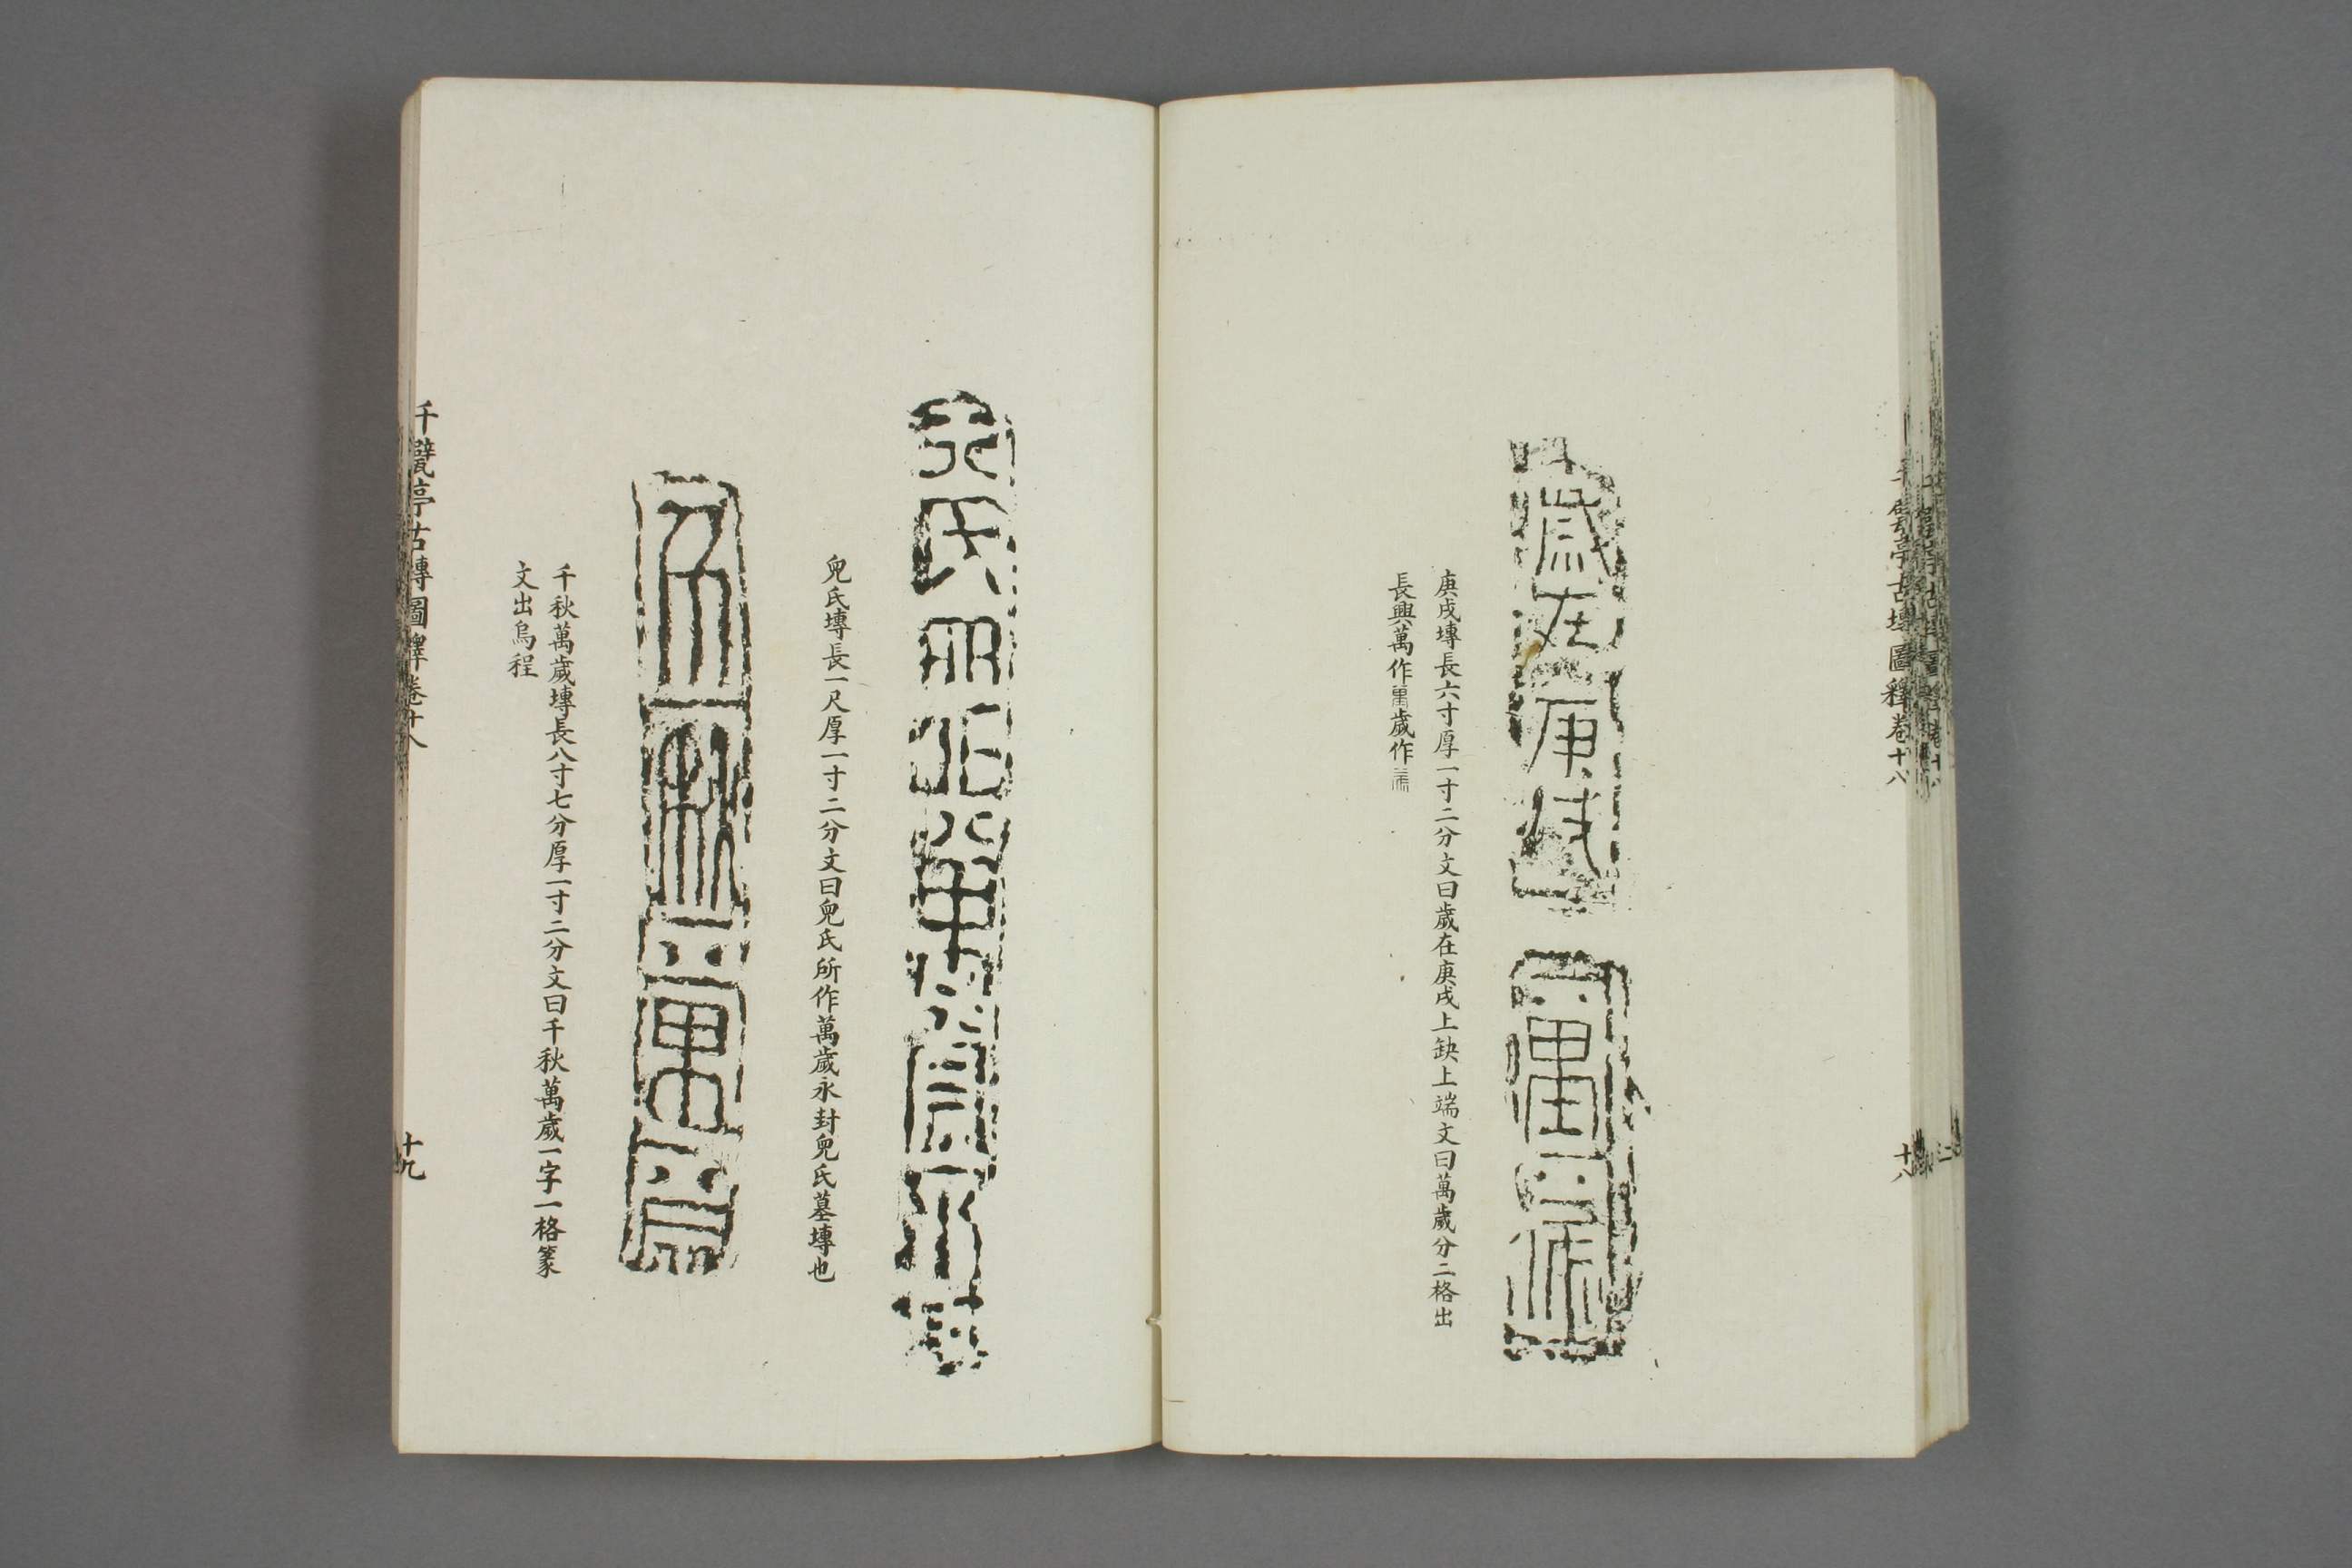 千甓亭古塼圖釋卷十八
十八
歲在庚戌
萬歲
庚戌塼長六寸厚一寸二分文曰歲在庚戌上缺上端文曰萬歲分二格出
長興萬作歲作
兒氏所作萬歲永封
兒氏塼長一尺厚一寸二分文曰兒氏所作萬歲永封兒氏墓塼也
千秋萬歲
千秋萬歲塼長八寸七分厚一寸二分文曰千秋萬歲一字一格篆
文出烏程
千甓亭古塼圖釋卷十八
十九